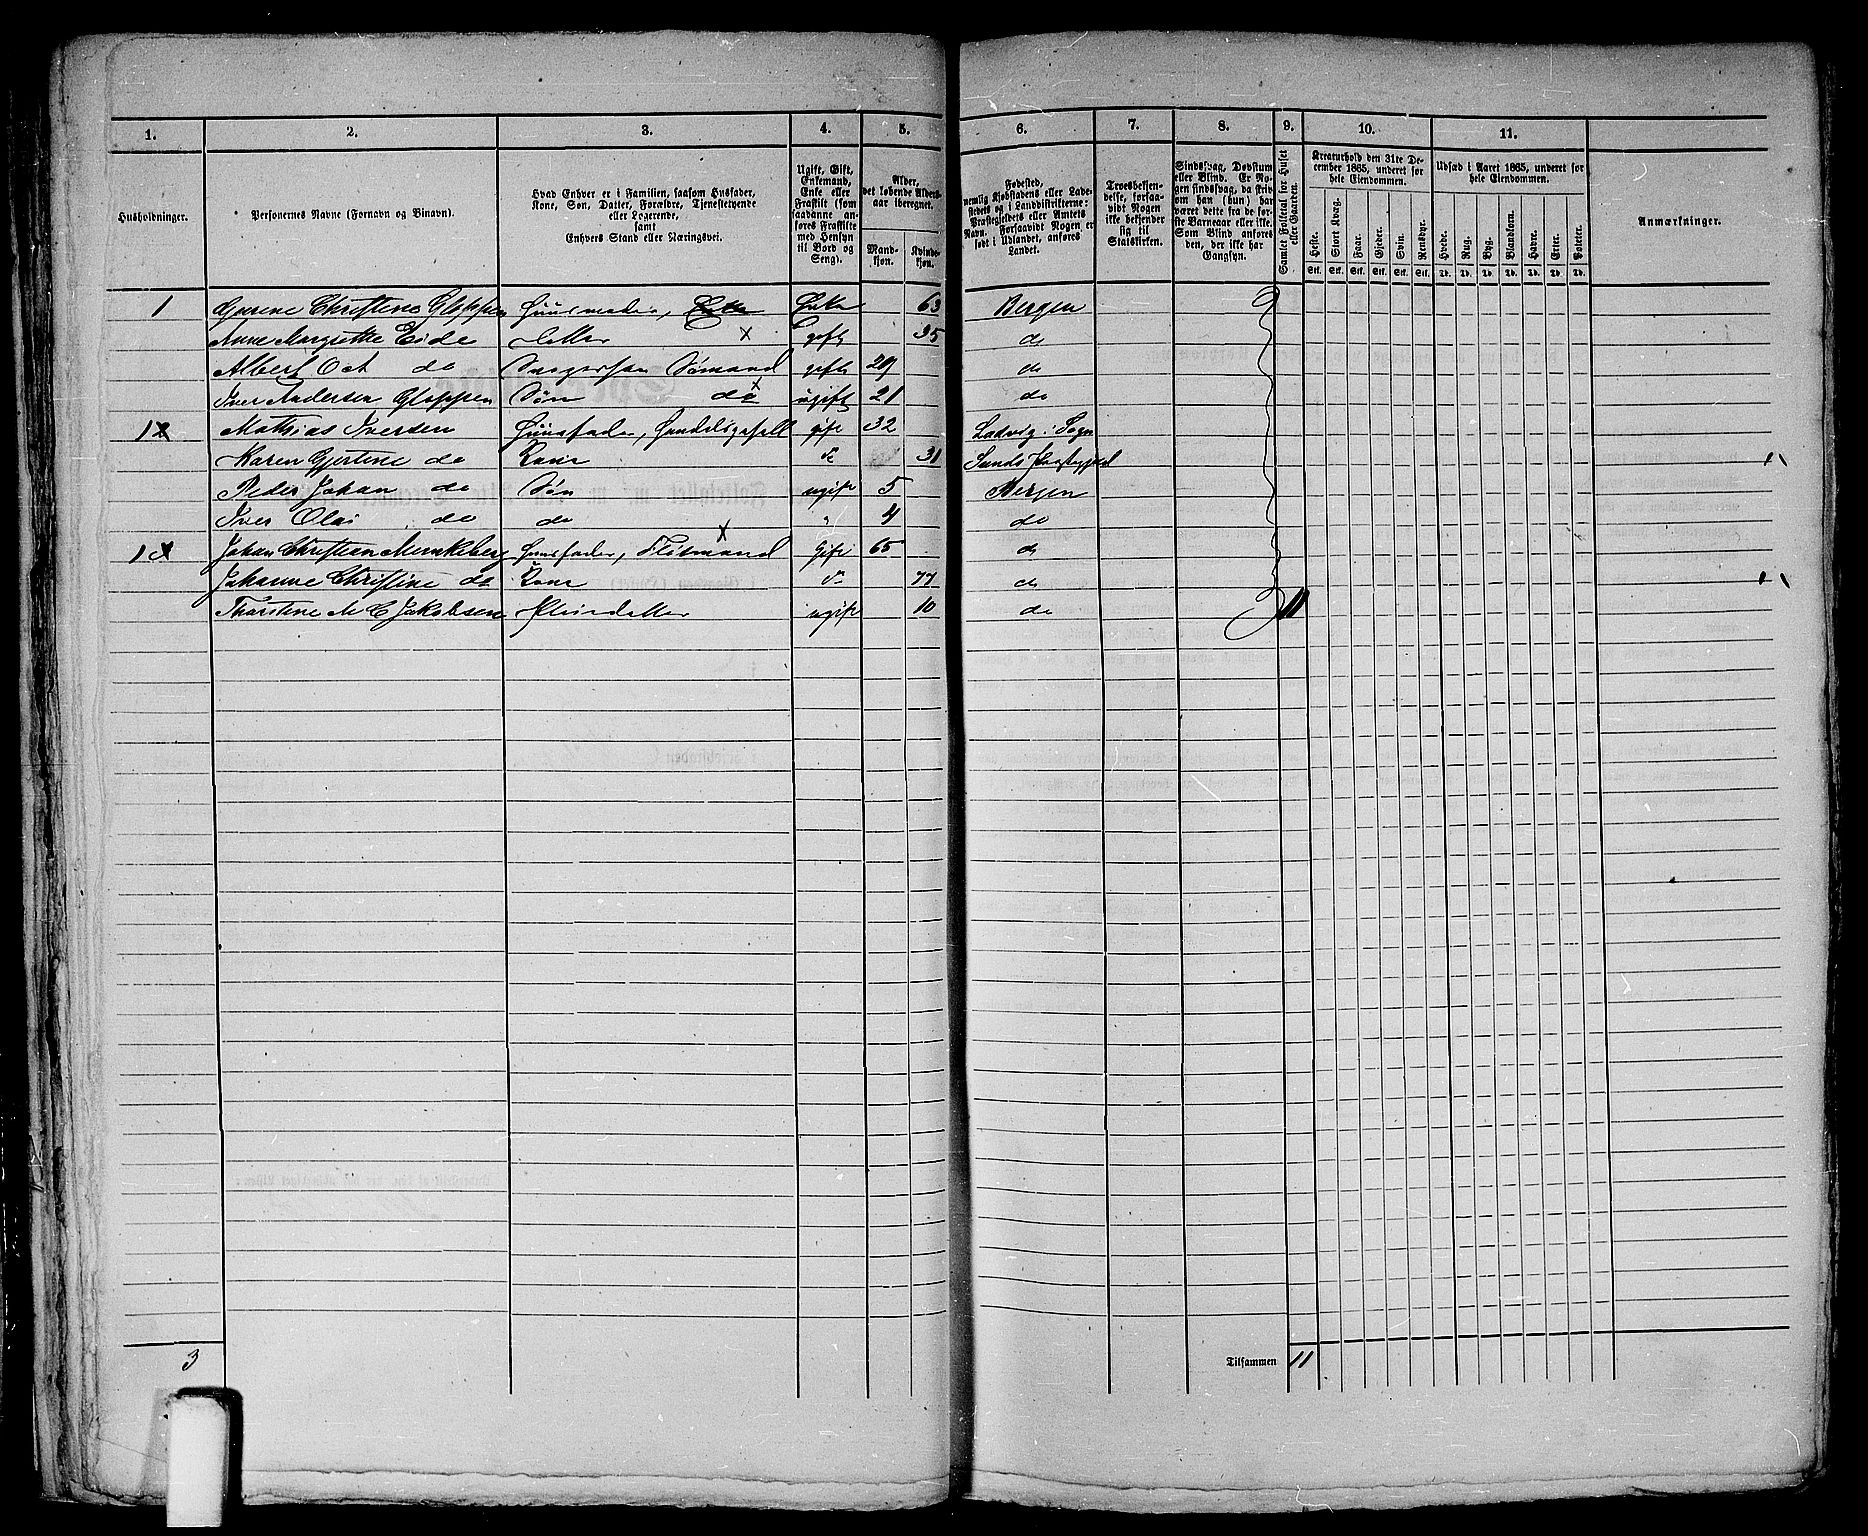 1. 2. 3. 4. 5. 6. 7. 8. 9. 10. 11.
Husholdninger.
Personernes Navne (Fornavn og Binavn).
Hvad Enhver er i Familien, saasom Husfader,
Kone, Søn, Datter, Forældre, Tjenestetyende
eller Logerende,
samt
Enhvers Stand eller Næringsvei.
Ugift, Gift,
Enkemand,
Enke eller
Fraskilt (som
saadanne an-
føres Fraskilte
med Hensyn
til Bord og
Seng).
Alder,
det løbende Alders-
aar iberegnet.
Mand-
kjøn.
Kvinde-
kjøn.
Fødested,
nemlig Kjøbstadens eller Lade-
stedets og i Landdistrikterne:
Præstegjeldets eller Amtets
Navn. Forsaavidt Nogen er
født i Udlandet, anføres
Landet.
Troesbekjen-
delse, forsaa-
vidt Nogen
ikke bekjender
sig til
Statskirken.
Sindssvag, Døvstum
eller Blind. Er No-
gen sindssvag, da skri-
ves om han (hun) har
været dette fra de før-
ste Barneaar eller ikke.
Som Blind anføres
den, der ikke har
Gangsyn.
Samlet Folketal for Huset
eller Gaarden.
Kreaturhold den 31te De-
cember 1865, underet for
hele Eiendommen.
Heste. Stort Kvæg. Faar. Gjeder. Svin. Rensdyr.
Stk. Stk. Stk. Stk. Stk. Stk.
Udsæd i Aaret 1865, underet for
hele Eiendommen.
Hvede. Rug. Byg. Blandkorn. Havre. Erter. Poteter.
Td. Td. Td. Td. Td. Td. Td.
Anmærkninger.
1 Gurine Christine Gloppen Huusmoder, Enke 63 Bergen
Anne Margrethe Eide Datter x gift 35 do
Albert Oct do Svigersøn Sømand gift 29 do
Iver Andersen Gloppen Søn do x ugift 21 do
1 Mathias Iversen Huusfader, Handelsgesell gift 32 Ladvig i Sogn
Karen Gjertine do Kone do 31 Sunds
Peder Johan do Søn ugift 5 Bergen
Iver Olai do do " 4 do
1 Johan Christian Munkeberg Huusfader, x Gift 65 do
Johanne Christine do Kone do 77 do
Thorstine M C Jakobsen Pleiedatter ugift 10 do 11
3 Tilsammen 11